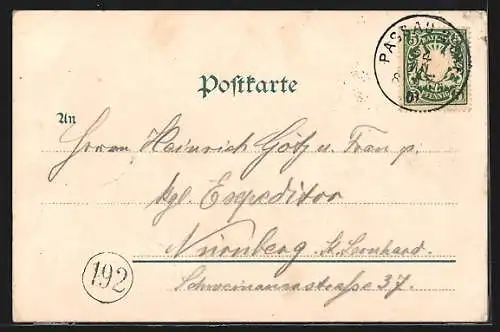 PASSAU
5 BAYERN 5
PFENNIG
Postkarte
An
Herrn Heinrich Götz u. Frau p.
kgl. Exepeditor
Nürnberg St. Leonhard.
Schweinauerstraße 37.
192